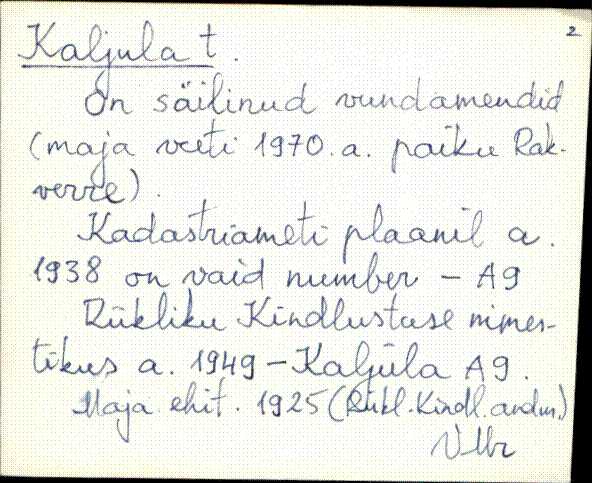 2
Kaljula t.
On säilinud vundamendid
(maja veeti 1970. a. paiku Rak-
verre).
Kadastriameti plaanil a.
1938 on vaid number - A9
Riikliku Kindlustuse nimes-
tikus a. 1949 - Kaljula A9.
Maja ehit. 1925 (Riikl. Kindl. andm.)